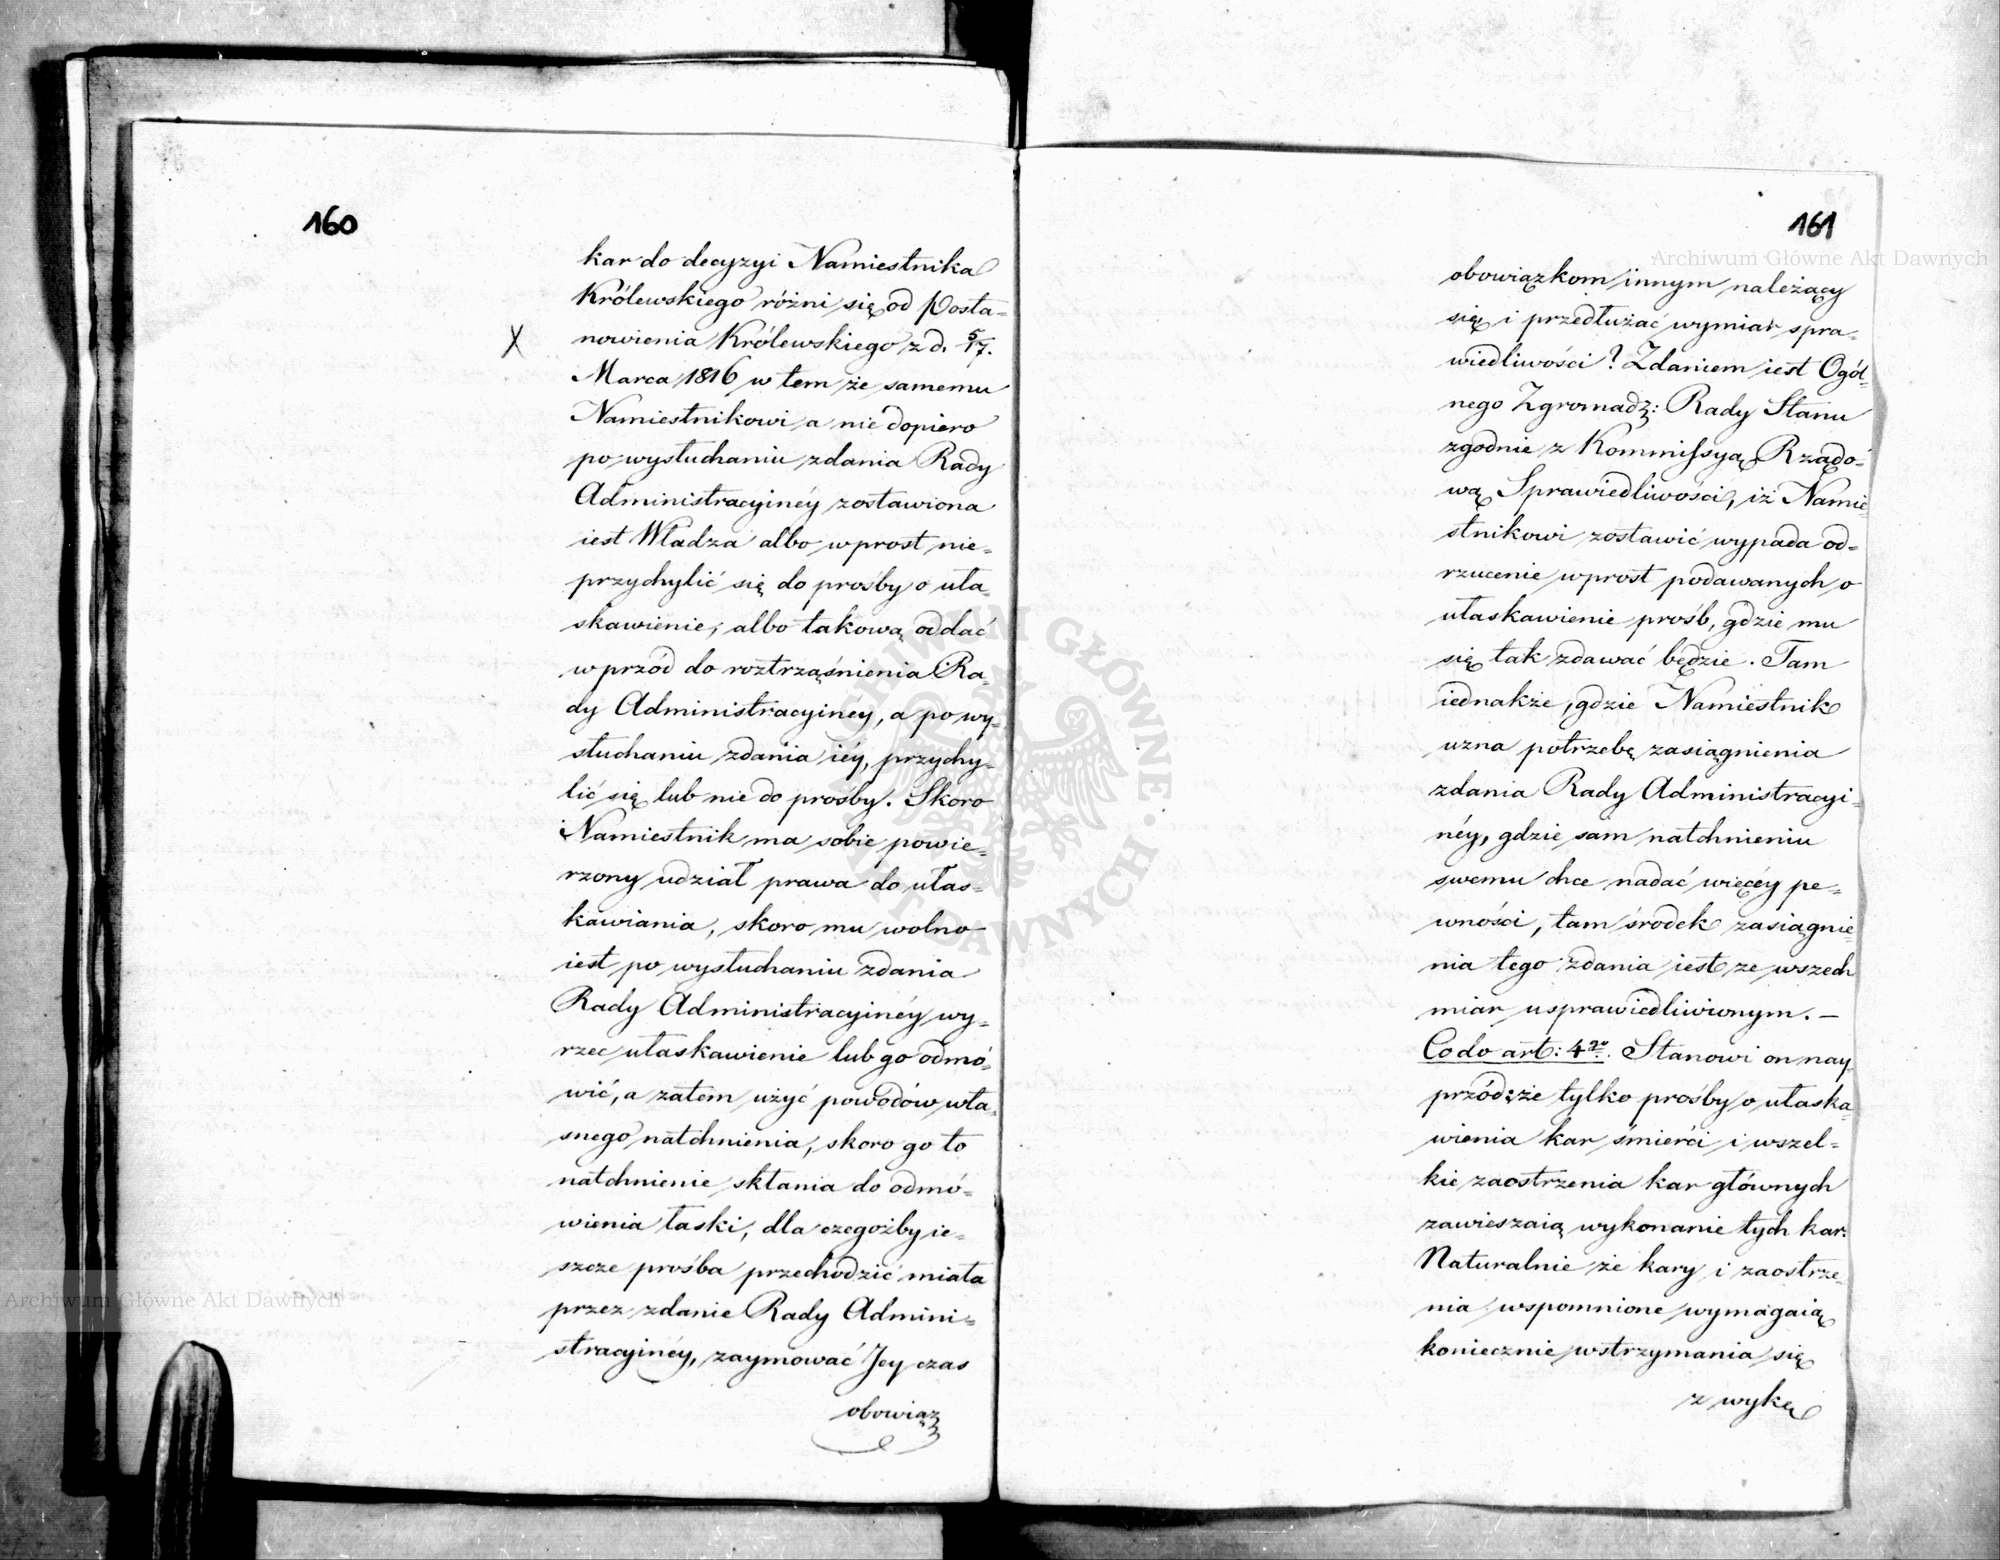 160
kar do decyzyi Namiestnika
Królewskiego różni się od Posta=
nowienia Królewskiego z d. 5/17.
X
Marca 1816 w tem że samemu
Namiestnikowi a nie dopiero
po wysłuchaniu zdania Rady
Administracyinéy zostawiona
iest Władza albo wprost nie=
przychylić się do prośby o uła=
skawienie, albo takową oddać
wprzód do roztrząśnienia Ra=
dy Administracyiney, a po wy=
słuchaniu zdania iéy, przychy=
lić się lub nie do prośby. Skoro
Namiestnik ma sobie powie=
rzony udział prawa do ułas=
kawiania, skoro mu wolno
iest po wysłuchaniu zdania
Rady Administracyinéy wy=
rzec ułaskawienie lub go odmó=
wić, a zatem użyć powodów wła=
snego natchnienia, skoro go to
natchnienie skłania do odmó=
wienia łaski, dla czegożby ie=
szcze prośba przechodzić miała
przez zdanie Rady Admini=
stracyinéy, zaymować Jey czas
obowiąz
161
obowiązkom innym należący
się i przedłużać wymiar spra=
wiedliwości? Zdaniem iest Ogól=
nego Zgromadz: Rady Stanu
zgodnie z Kommissyą Rządo=
wą Sprawiedliwości, iż Namie=
stnikowi zostawić wypada od=
rzucenie wprost podawanych o
ułaskawienie prośb, gdzie mu
się tak zdawać będzie. Tam
iednakże, gdzie Namiestnik
uzna potrzebę zasiągnienia
zdania Rady Administracyi=
néy, gdzie sam natchnieniu
swemu chce nadać więcéy pe=
wności, tam środek zasiągnie=
nia tego zdania iest ze wszech
miar usprawiedliwionym. –
Co do art: 4go. Stanowi on nay=
przód, że tylko prośby o ułaska=
wienia kar śmierci i wszel=
kie zaostrzenia kar głównych
zawieszaią wykonanie tych kar.
Naturalnie że kary i zaostrze=
nia wspomnione wymagaią
koniecznie wstrzymania się
z wyko
Archiwum Główne Akt Dawnych
Archiwum Główne Akt Dawnych
ARCHIWUM GŁÓWNE AKT DAWNYCH